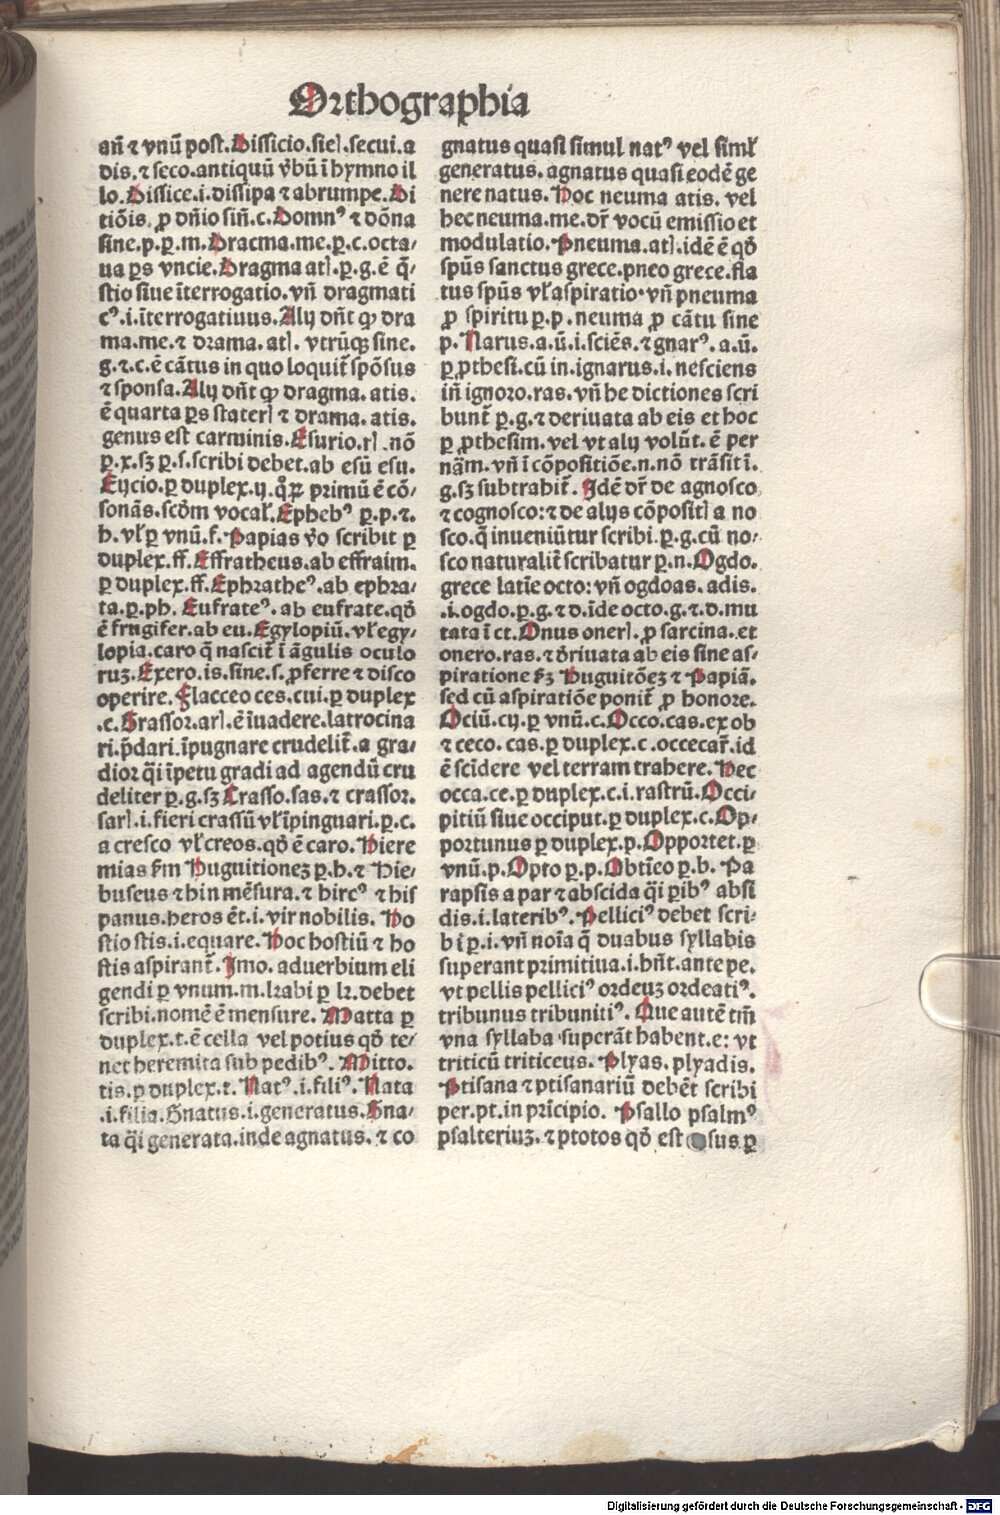 Orthographia
añ ⁊ vnū post. Dissicio.sieɫ.secui.a
dis.⁊ seco.antiquū v̄bū ī hymno il
lo. Dissice.i.dissipa ⁊ abrumpe. Di
tiōis ꝓ dñio siñ.c. Domnꝰ ⁊ dōna
sine.p.ꝑ.m. Dracma.me.ꝑ.c.octa⸗
ua ꝑs vncie. Dragma atꝭ.ꝑ.g.ē q̄⸗
stio siue īterrogatio.vñ dragmati
cꝰ.i.īterrogatiuus. Alij dñt ꝙ dra
ma.me.⁊ drama.atꝭ.vtrūqꝫ sine.
g.⁊.c.ē cātus in quo loquit̄ spōsus
⁊ sponsa. Alij dñt ꝙ dragma.atis.
ē quarta ꝑs staterꝭ ⁊ drama.atis.
genus est carminis. Esurio.rꝭ.nō
ꝑ.x.sꝫ ꝑ.s.scribi debet.ab esū esu.
Eijcio.ꝑ duplex.ij.q̊ꝝ primū ē cō⸗
sonās.scd̄m vocaɫ. Ephebꝰ ꝑ.p.⁊.
h. vɫ ꝑ vnū.f. Papias v̊o scribit ꝑ
duplex.ff. Effratheus.ab effraim.
ꝑ duplex.ff. Ephratheꝰ.ab ephra⸗
ta.ꝑ.ph. Eufrateꝰ.ab eufrate.qd̄
ē frugifer.ab eu. Egylopiū.vɫ egy⸗
lopia.caro q̄ nascit̄ ī āgulis oculo
ruꝫ. Exero.is.sine.s.ꝓferre ⁊ disco
operire. Flacceo ces.cui.ꝑ duplex
.c. Grassor.arꝭ.ē īuadere.latrocina
ri.p̄dari.īpugnare crudelit̄.a gra⸗
dior q̄i īpetu gradi ad agendū cru
deliter ꝑ.g.sꝫ Crasso.sas.⁊ crassor.
sarꝭ.i.fieri crassū vɫ īpinguari.ꝑ.c.
a cresco vɫ creos.qd̄ ē caro. Hiere
mias ẜm Huguitioneꝫ ꝑ.h.⁊ Hie⸗
buseus ⁊ hin mēsura.⁊ hircꝰ ⁊ his
panus.heros ēt.i.vir nobilis. Ho
stio stis.i.equare. Hoc hostiū ⁊ ho
stis aspirant̄. Imo.aduerbium eli
gendi ꝑ vnum.m.kabi ꝑ k.debet
scribi.nomē ē mensure. Matta ꝑ
duplex.t.ē cella vel potius qd̄ te⸗
net heremita sub pedibꝰ. Mitto.
tis.ꝑ duplex.t. Natꝰ.i.filiꝰ. Nata
.i.filia. Gnatus.i.generatus. Gna⸗
ta q̄i generata.inde agnatus.⁊ co
gnatus quasi simul natꝰ vel simɫ
generatus. agnatus quasi eodē ge
nere natus. Hoc neuma atis. vel
hec neuma.me.dr̄ vocū emissio et
modulatio. Pneuma.atꝭ.idē ē qd̄
spūs sanctus grece.pneo grece.fla
tus spūs vɫ aspiratio.vñ pneuma
ꝓ spiritu ꝑ.p.neuma ꝓ cātu sine
p. Narus.a.ū.i.sciēs.⁊ gnarꝰ.a.ū.
ꝑ ꝓthesi.cū in.ignarus.i.nesciens
iñ ignoro.ras.vñ he dictiones scri
bunt̄ ꝑ.g.⁊ deriuata ab eis et hoc
ꝑ ꝓthesim.vel vt alij volūt.ē per
nām.vñ ī cōpositiōe.n.nō trāsit ī.
g.sꝫ subtrahit̄. Idē dr̄ de agnosco
⁊ cognosco:⁊ de alijs cōpositꝭ a no
sco.q̄ inueniūtur scribi.ꝑ.g.cū no⸗
sco naturalit̄ scribatur ꝑ.n. Ogdo.
grece latīe octo: vñ ogdoas.adis.
.i.ogdo.ꝑ.g.⁊ d.īde octo.g.⁊.d.mu
tata ī ct. Onus onerꝭ.ꝓ sarcina.et
onero.ras.⁊ d̄riuata ab eis sine as⸗
piratione ẜꝫ Huguitōeꝫ ⁊ Papiā.
sed cū aspiratiōe ponit̄ ꝓ honore.
Ociū.cij.ꝑ vnū.c. Occo.cas.ex ob
⁊ ceco.cas.ꝑ duplex.c.occecar̄.id
ē scīdere vel terram trahere. Hec
occa.ce.ꝑ duplex.c.i.rastrū. Occi⸗
pitiū siue occiput.ꝑ duplex.c. Op⸗
portunus ꝑ duplex.p. Opportet.ꝑ
vnū.p. Opto ꝑ.p. Obtīco ꝑ.b. Pa
rapsis a par ⁊ abscida q̄i ꝑibꝰ absi
dis.i.lateribꝰ. Pelliciꝰ debet scri⸗
bi ꝑ.i.vñ noīa q̄ duabus syllabis
superant primitiua.i.hñt.ante pe.
vt pellis pelliciꝰ ordeuꝫ ordeatiꝰ.
tribunus tribunitiꝰ. Que autē tm̄
vna syllaba superāt habent.e: vt
triticū triticeus. Plyas.plyadis.
Ptisana ⁊ ptisanariū debēt scribi
per.pt.in prīcipio. Psallo psalmꝰ
psalteriuꝫ.⁊ ptotos qd̄ est sus ꝑ
Digitalisierung gefördert durch die Deutsche Forschungsgemeinschaft - DFG